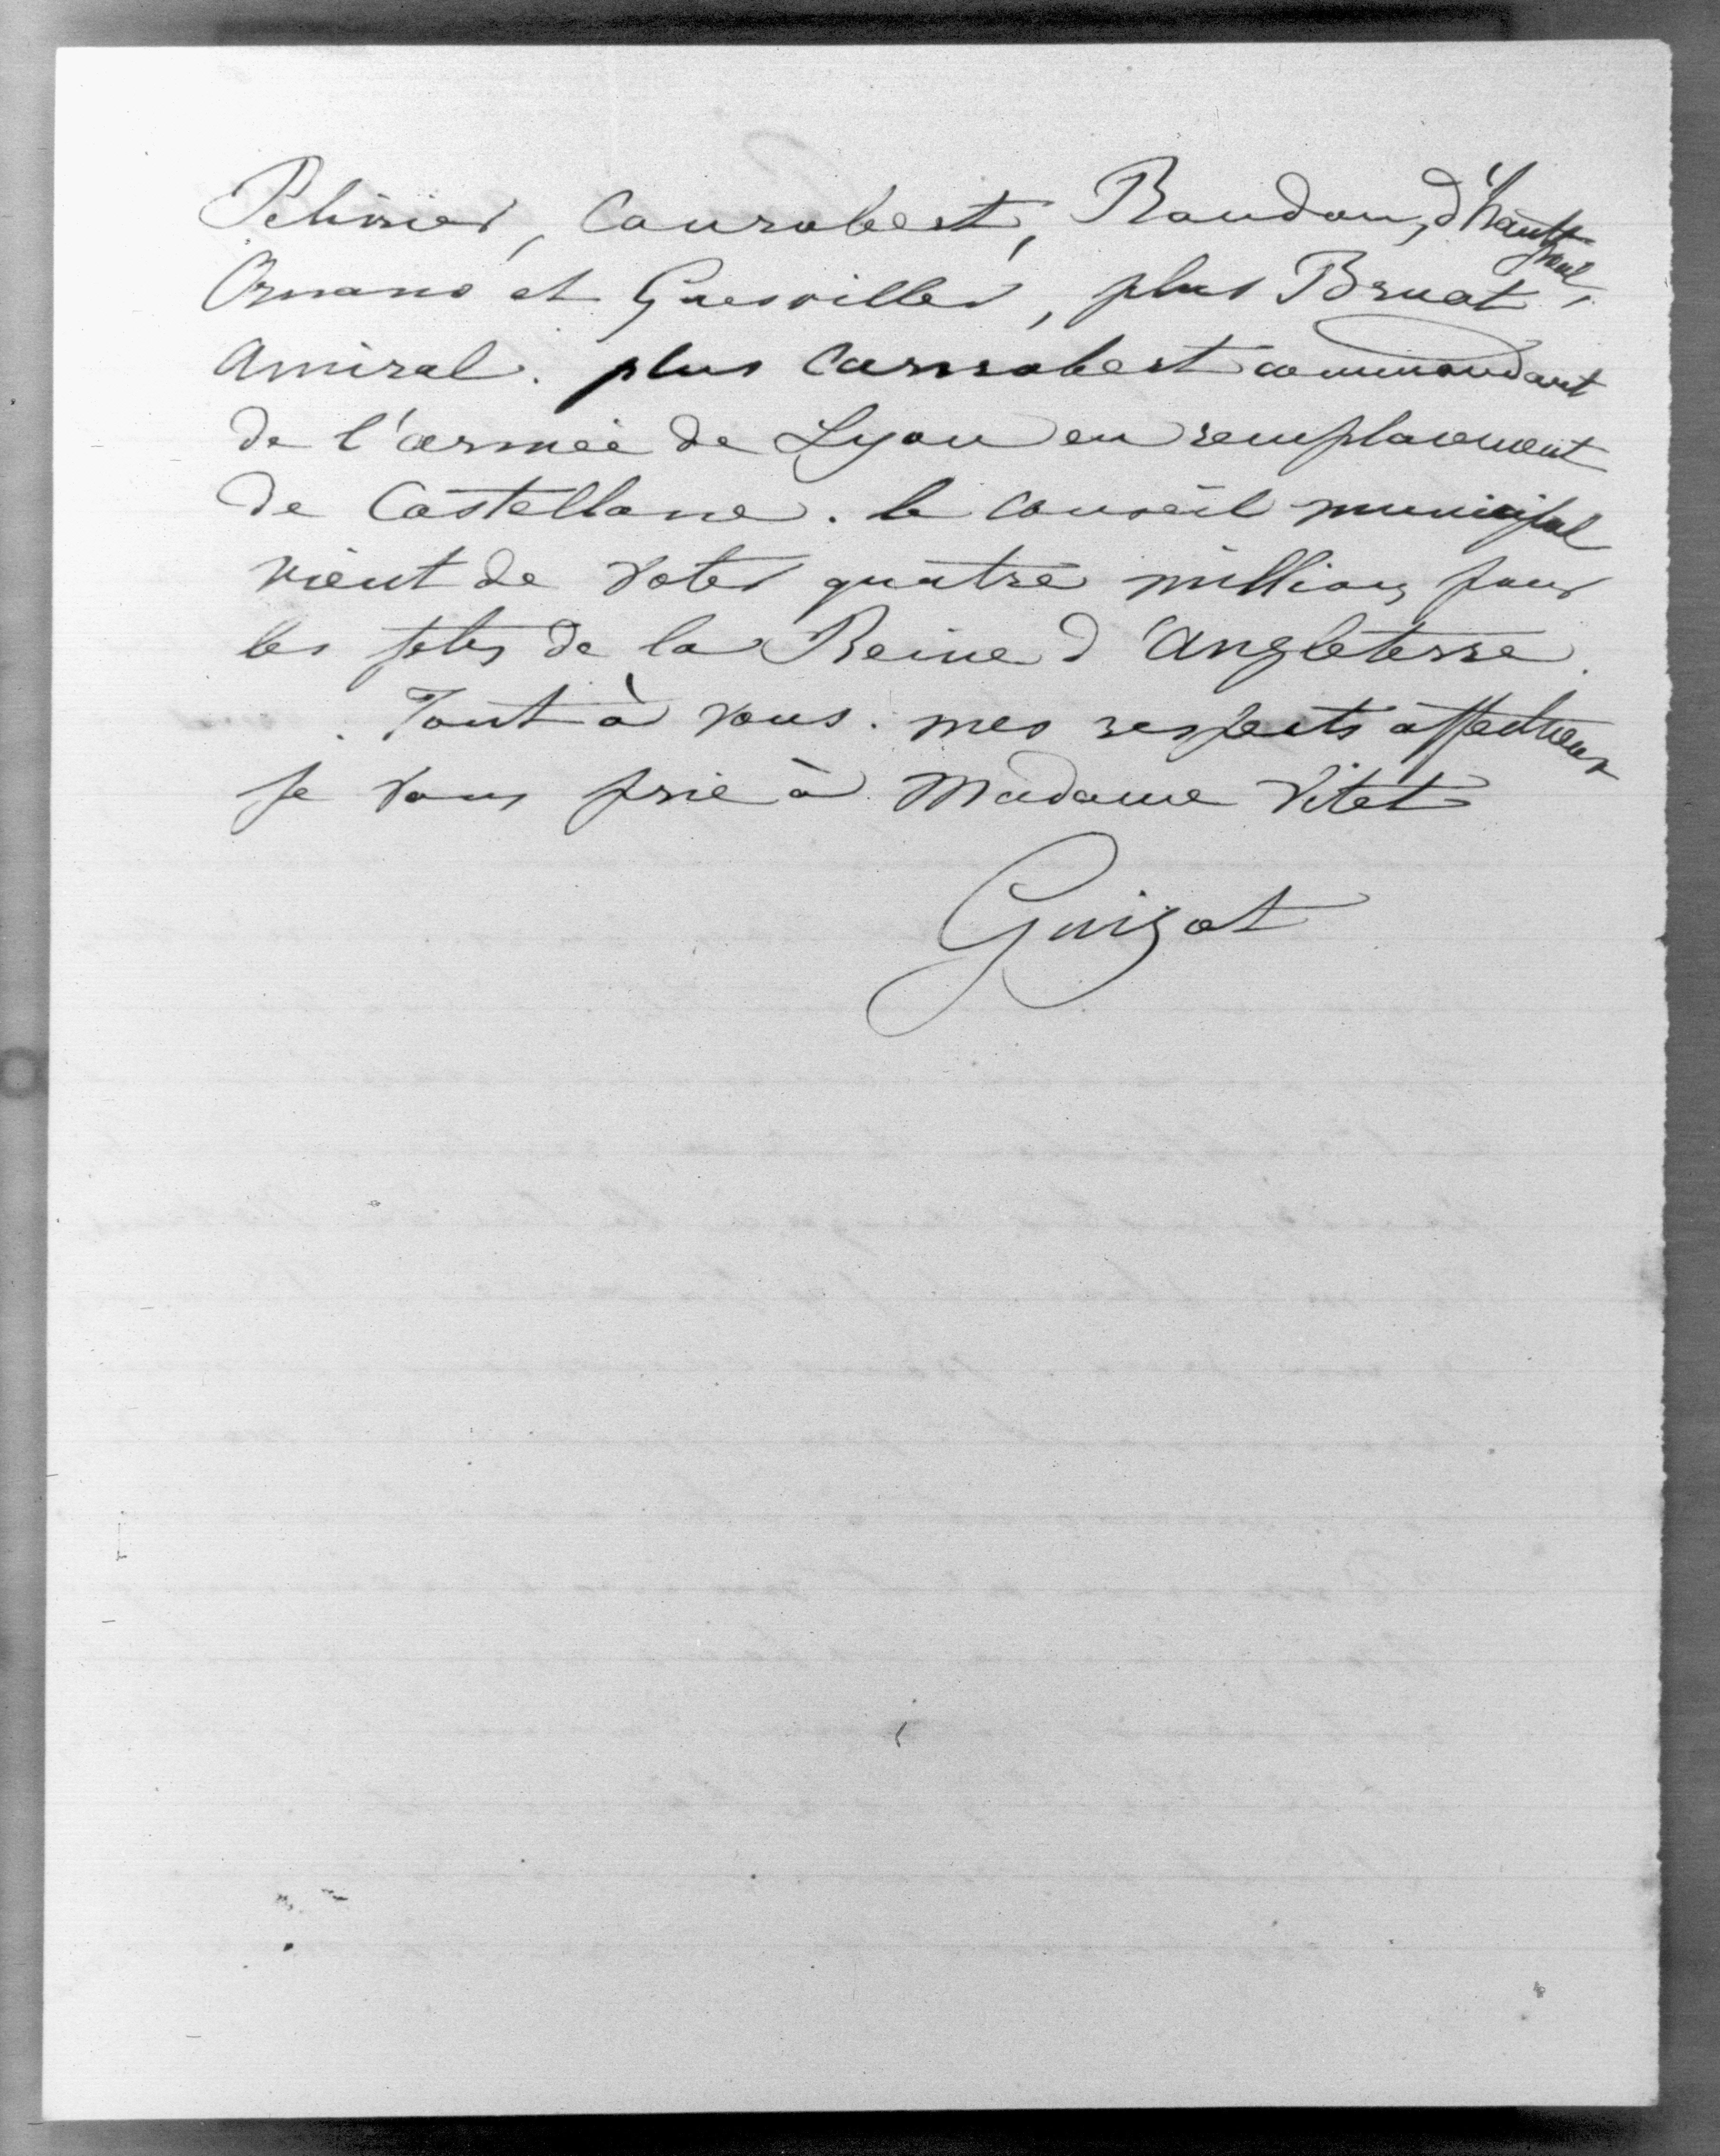 Pelissier, Canrobert, Randon, d'hautpoul,
Ornano et Guesviller, plus Bruat
amiral. plus Canrobert commandant
de l'armée de Lyon en remplacement
de Castellane. le conseil municipal
vient de voter quatre millions pour
les fetes de la Reine d'Angleterre.
Tout à vous. mes respects affectueux
je vous prie à Madame Vitet
Guizot